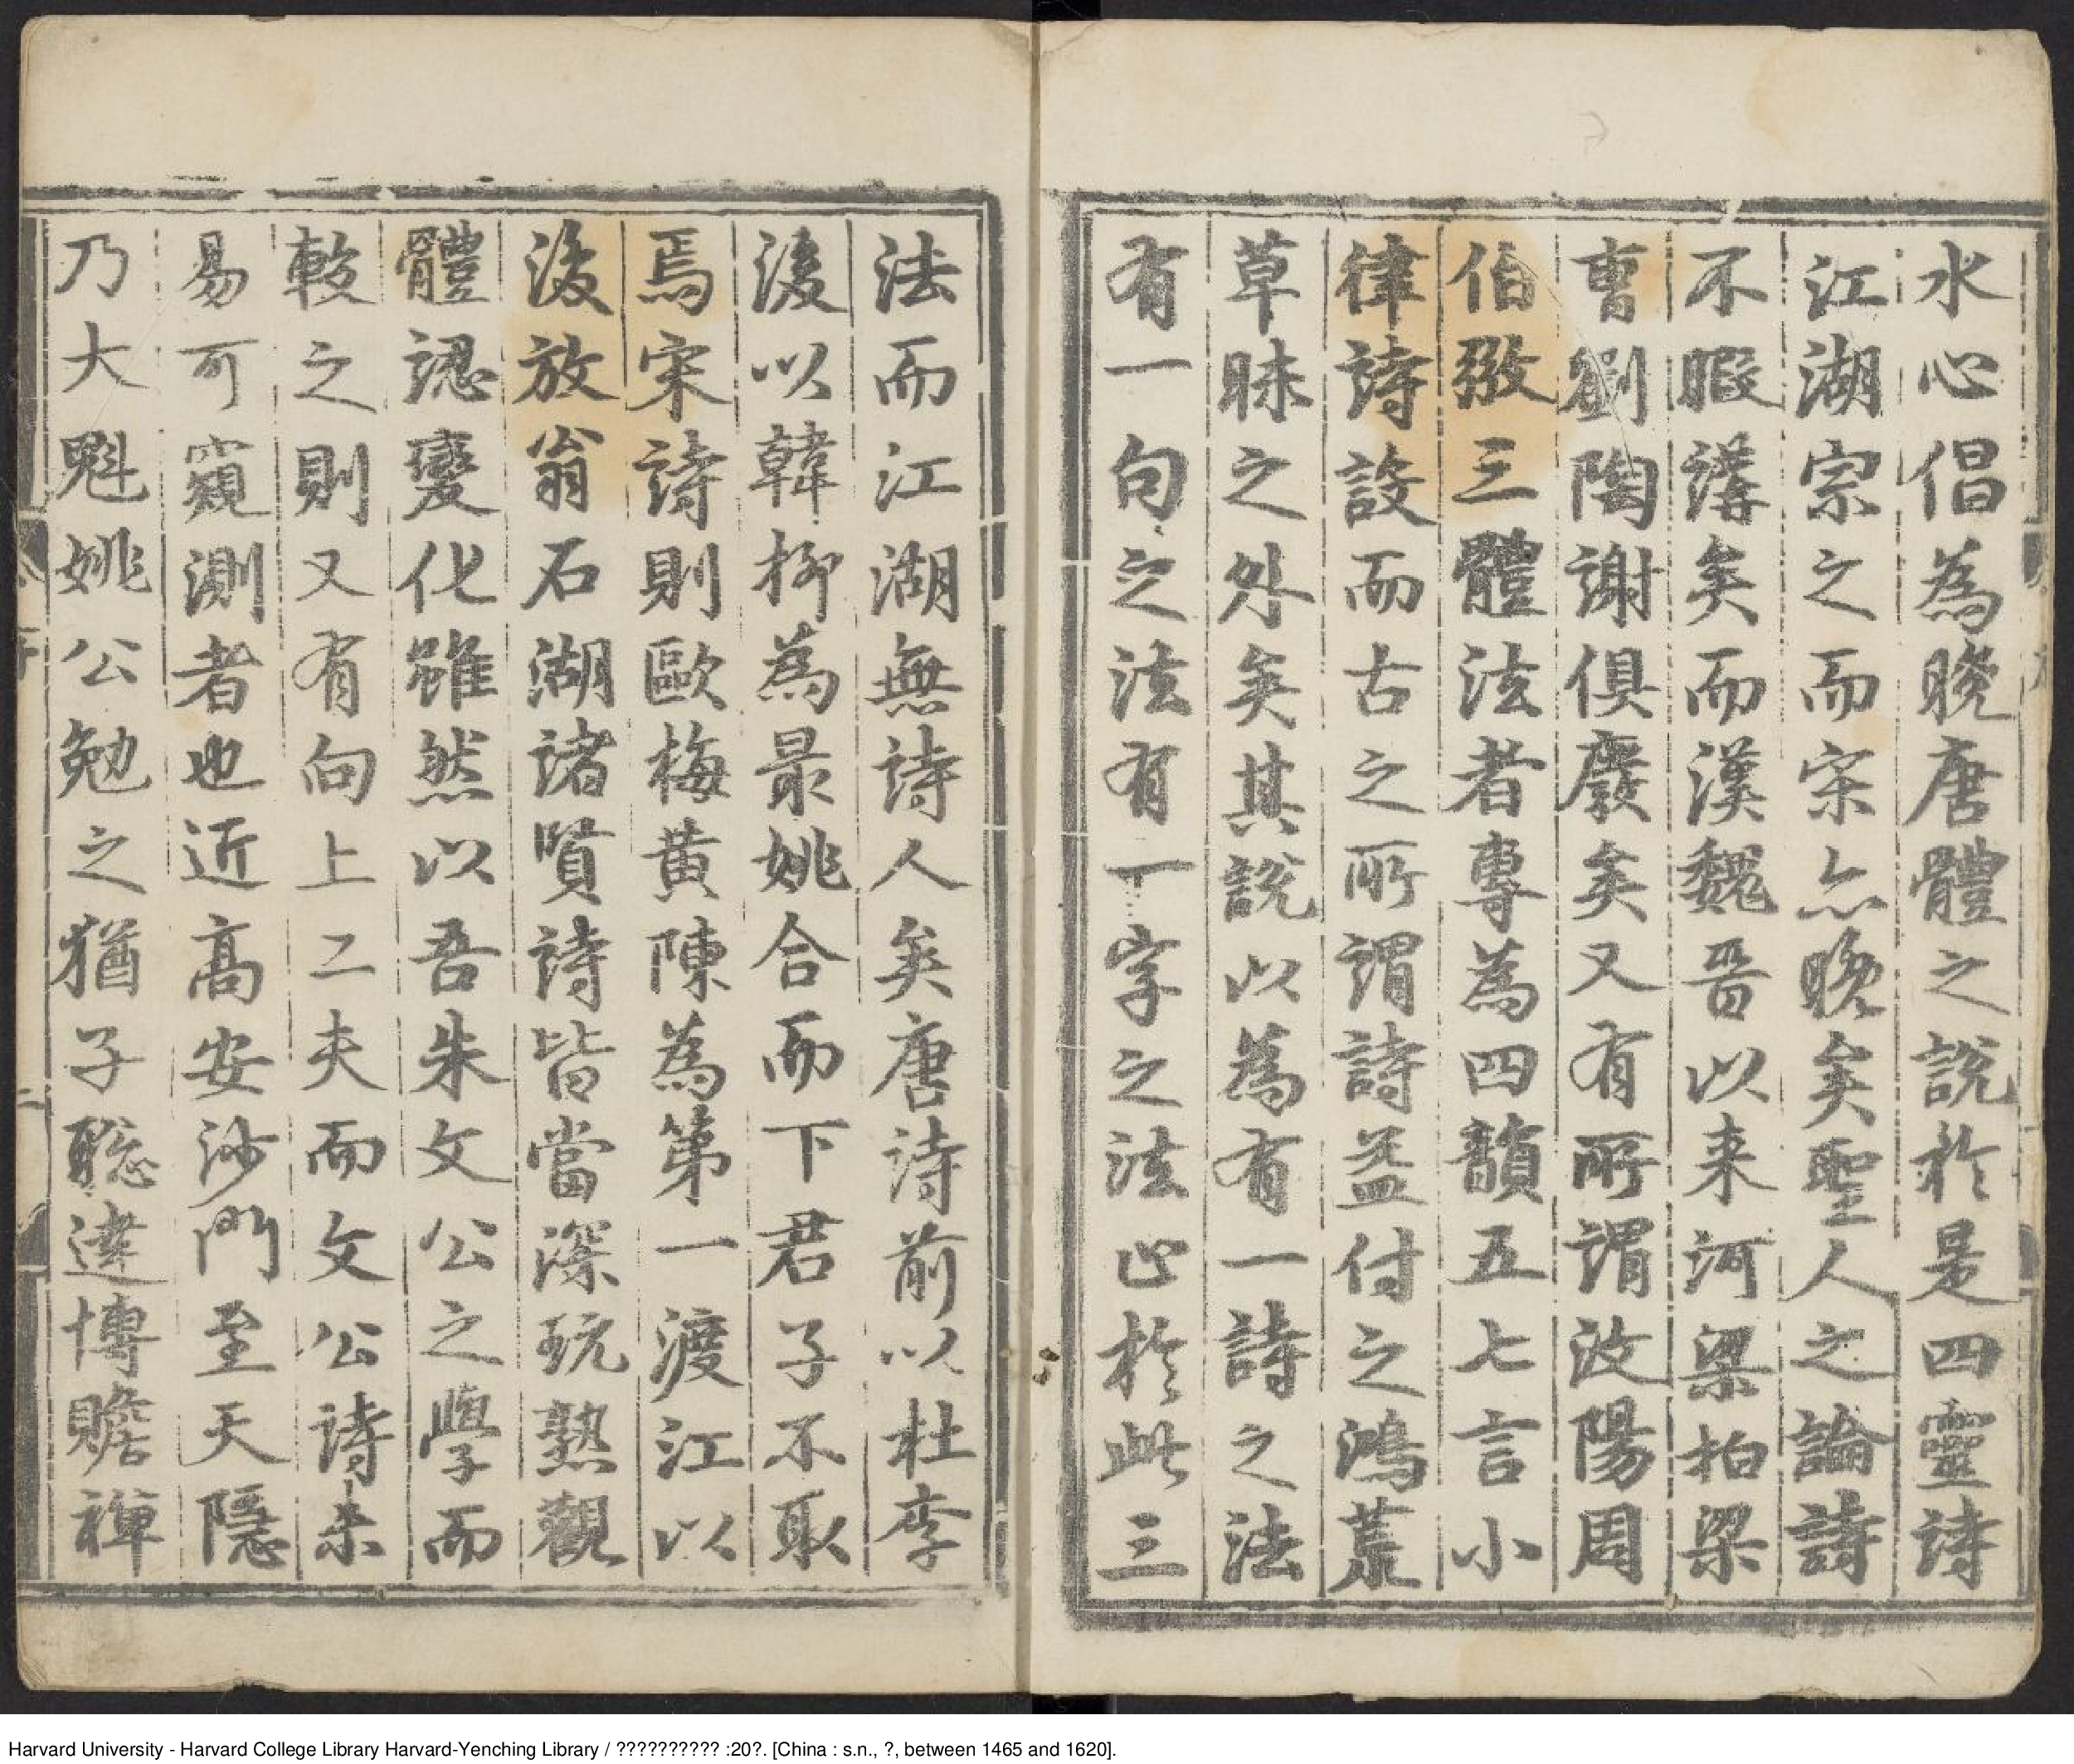 水心倡為晚唐體之說於是四靈詩
江湖宗之而宋亦晚矣聖人之論詩
不暇講矣而漢魏晋以来河梁柏梁
曹劉陶謝俱廢矣又有所謂汶陽周
伯弜三體法者專為四韻五七言小
律詩設而古之所謂詩益付之鴻荒
草昧之外矣其說以為有一詩之法
有一句之法有一字之法止於此三
法而江湖無詩人矣唐詩前以杜李
後以韓柳為最姚合而下君子不取
焉宋詩則歐梅黄陳為第一渡江以
後放翁石湖諸賢詩皆當深玩熟觀
體認變化雖然以吾朱文公之學而
較之則又有向上工夫而文公詩未
易可窺測者也近高安沙門至天隱
乃大魁姚公勉之猶子聡達博贍禪
Harvard University - Harvard College Library Harvard-Yenching Library / ?????????? :20?. [China : s.n., ?, between 1465 and 1620].